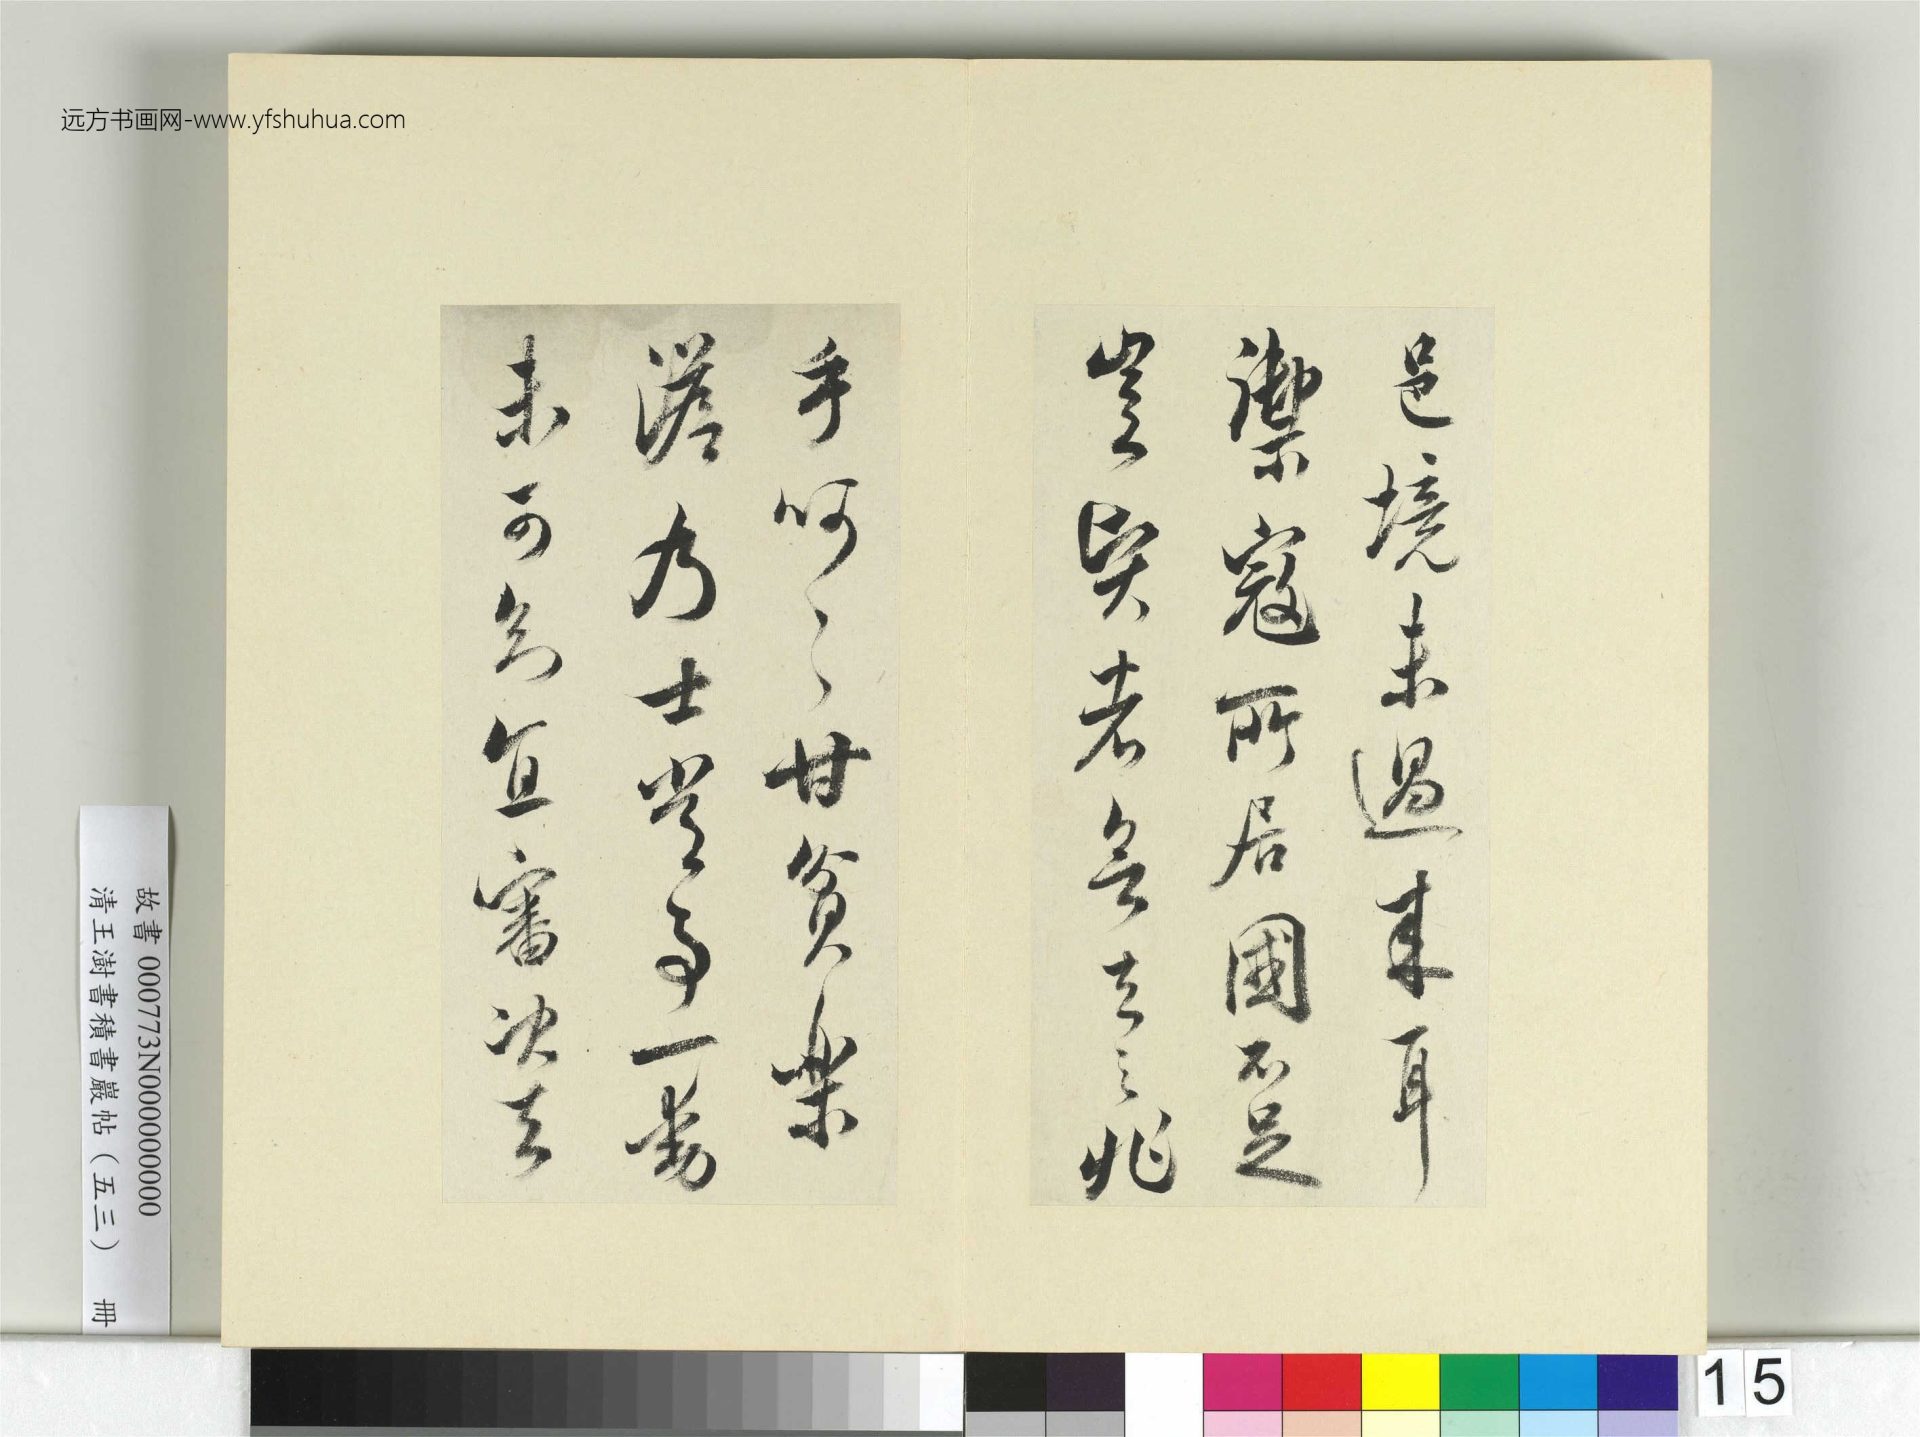 远方书画网-www.yfshuhua.com
邑境未過來耳
禦寇所居國不足
豈賢者去之兆
乎呵呵甘貧樂
澹乃士常事一動
未可知宜審決去
故書 000773N000000000
清王澍書積書巖帖（五三） 冊
15